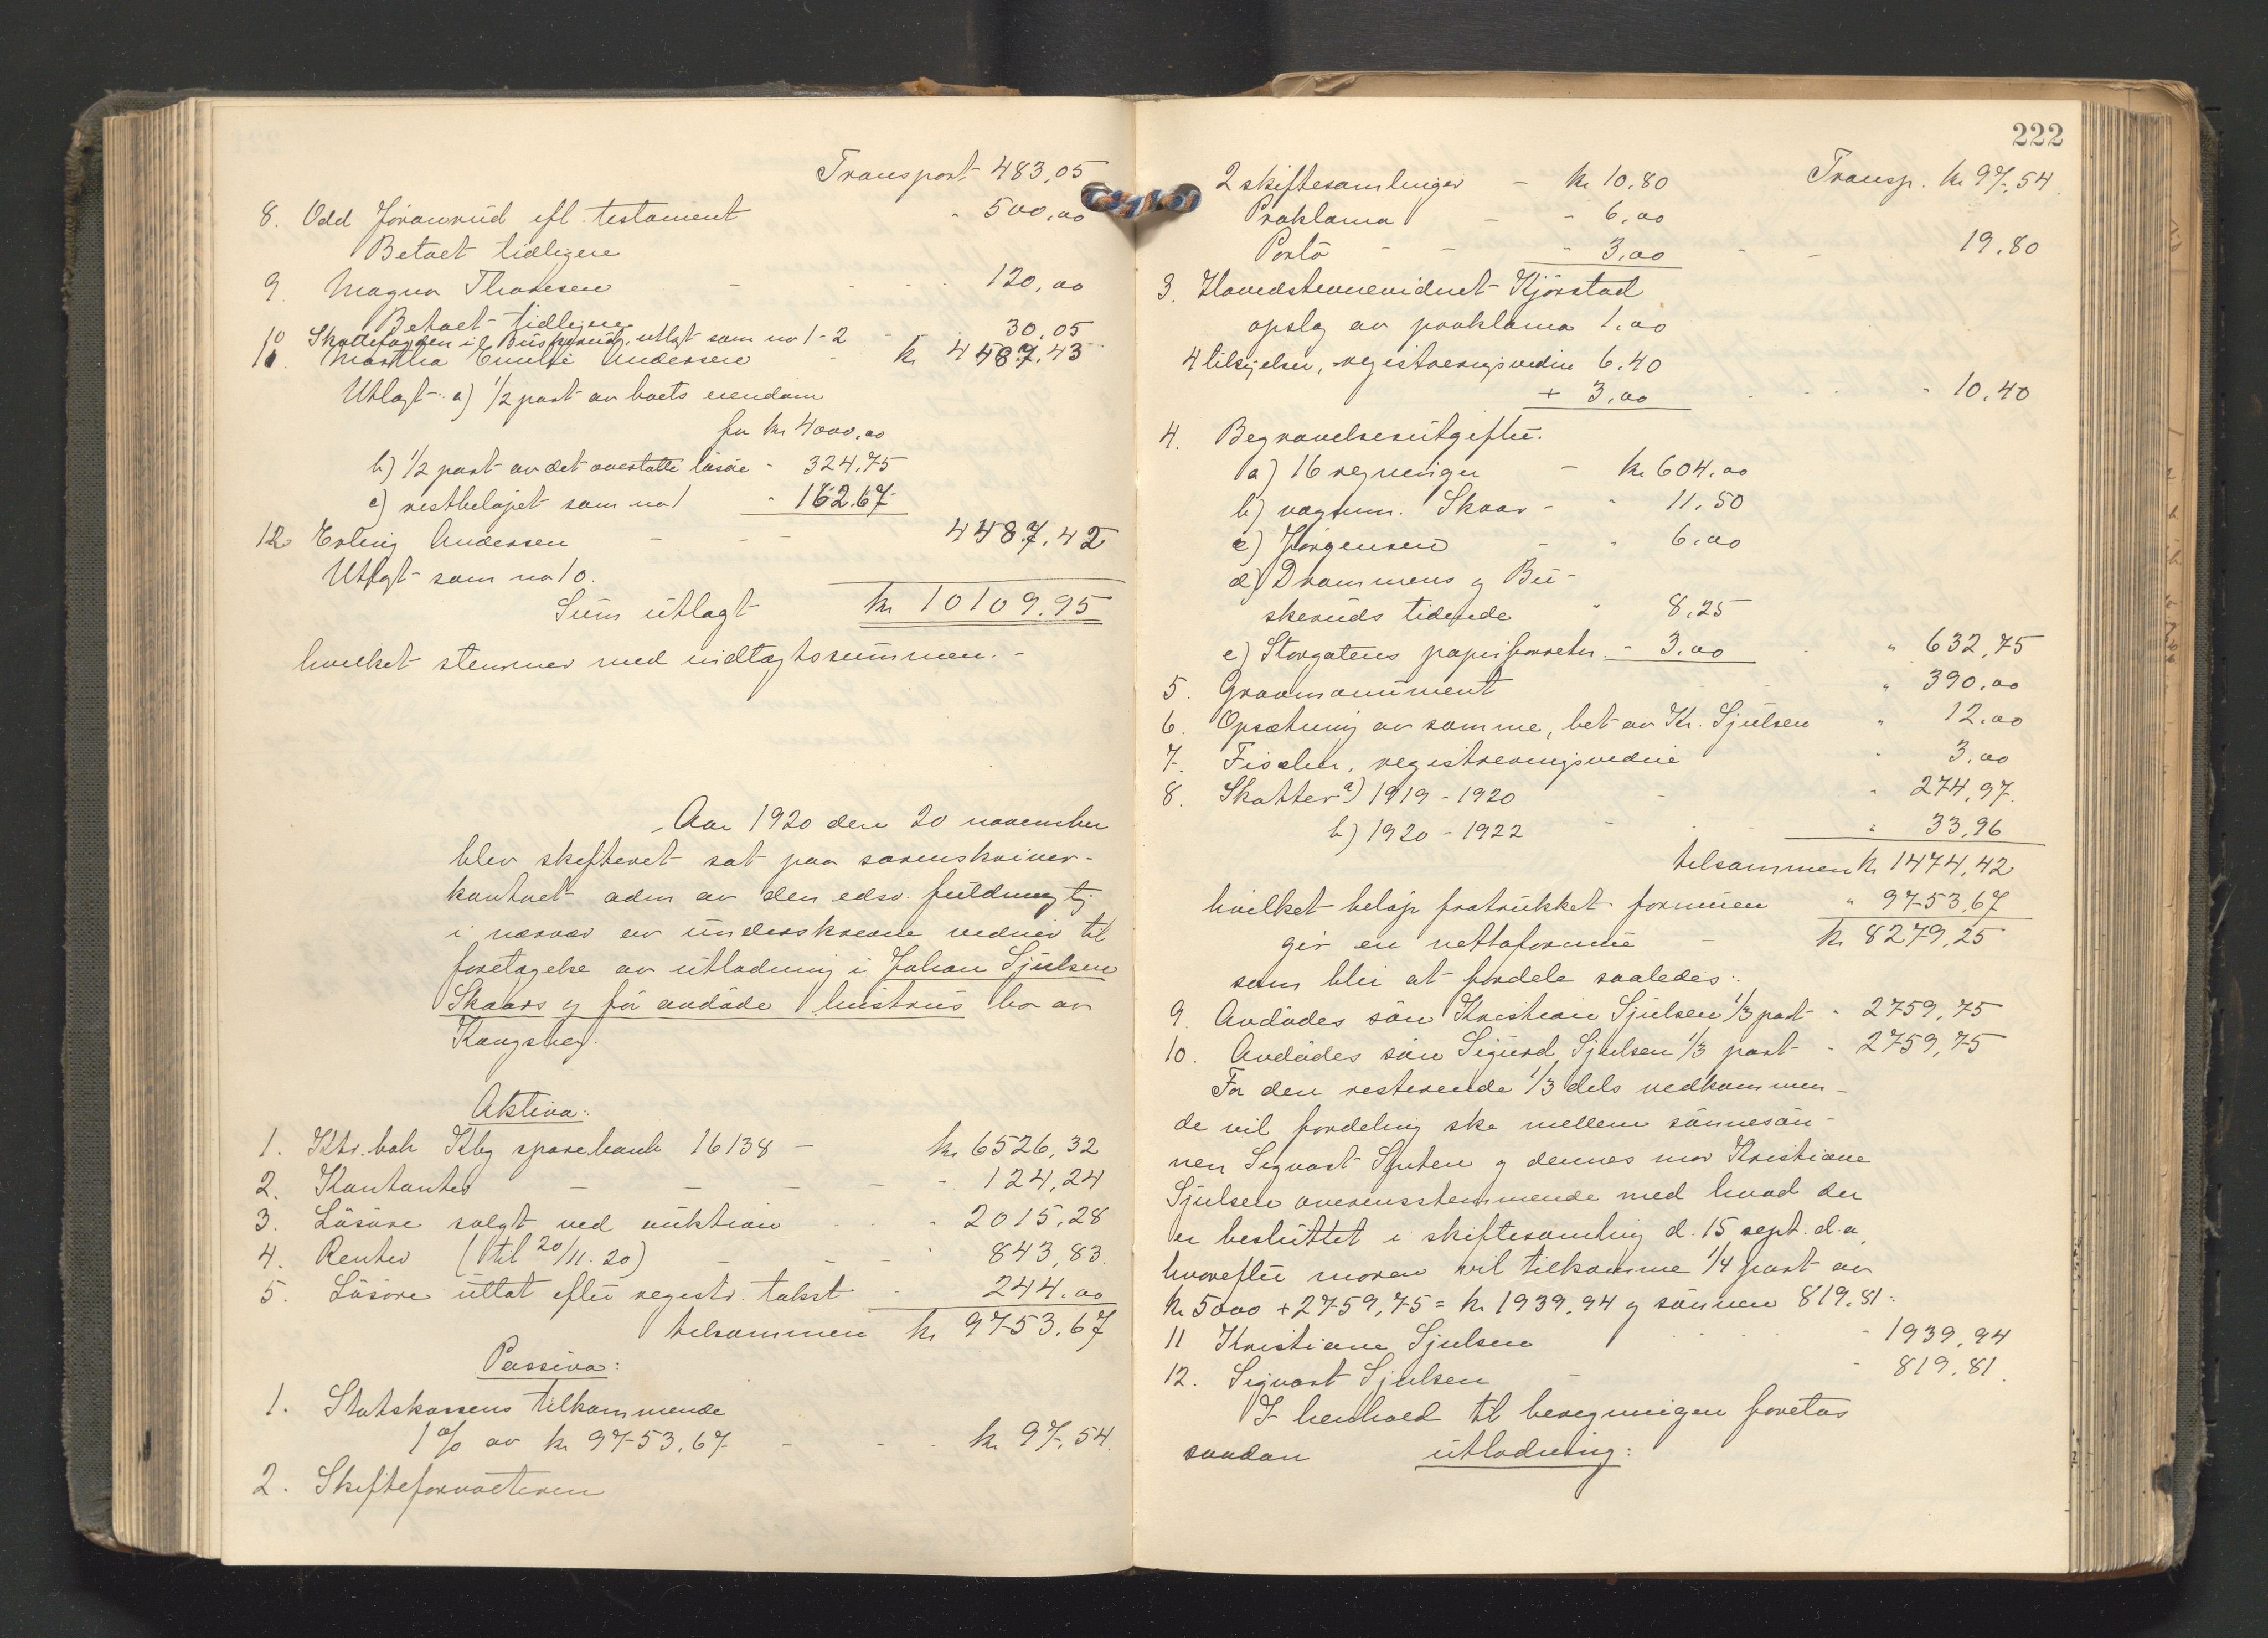 Transport 483,05
8. Odd Jöranrud efl. testament - 500,00
Betalt tidligere
9. Magna Thoresen - - - - 120,00
Betalt tidligere
10 Skattefogden i Buskerud, utlagt som no 1-2 - 30,05
11. Martha Emilie Andersen - kr 4487,43
Utlagt: a) 1/2 part av boets eiendom
for kr 4000,00
b) 1/2 part av det overtatte lösöre - 324,75
c) restbelöpet som no 1 - 162,67
12 Erling Andersen - - - 4487,42
Utlagt som no 10.
Sum utlagt kr 10109,95
hvilket stemmer med indtægtssummen. -
Aar 1920 den 20 november
blev skifteret sat paa sorenskriver-
kontoret adm av den edsv. fuldmægtig
i nærvær av underskrevne vidner til
foretagelse av utlodning i Johan Sjulsen
Skaars og för avdöde hustrus bo av
Kongsberg.
Aktiva:
1. Ktr. bok Kbg sparebank 16138 - kr 6526,32
2. Kontanter - - - - - 124,24
3. Lösöre solgt ved auktion - - - 2015,28
4. Renter (til 20/11. 20) - - - 843,83
5. Lösöre uttat efter registr. takst - 244,00
tilsammen kr 9753,67
Passiva:
1. Statskassens tilkommende
1 % av kr 9753,67 - - - kr 97,54
2. Skifteforvalteren
222
2 skiftesamlinger - kr 10,80 Transp. kr 97,54
Proklama - - 6,00
Porto - - - 3,00 - - 19,80
3. Hovedstevnevidnet Kjörstad
opslag av proklama 1,00
4 tilsigelser, registreringsvidne 6.40
+ 3,00 - - - - 10,40
4. Begravelsesutgifter.
a) 16 regninger - kr 604,00
b) vognm. Skaar - - 11,50
c) Jörgensen - - 6,00
d) Drammens og Bu-
skeruds tidende - 8,25
e) Storgatens papirforretn. - 3,00 - " 632,75
5. Gravmonument - - " 390,00
6. Opsætning av samme, bet av Kr. Sjulsen " 12,00
7. Fischer, registreringsvidne - 3,00
8. Skatter a) 1919 - 1920 - " 274,97
b) 1920 - 1922 - - - " 33,96
tilsammen kr 1474,42
hvilket belöp fratrukket formuen " 9753,67
gir en nettoformue - kr 8279,25
som blir at fordele saaledes:
9. Avdödes sön Kristian Sjulsen 1/3 part - 2759,75
10. Avdödes sön Sigurd Sjulsen 1/3 part - 2759,75
For den resterende 1/3 dels vedkommen-
de vil fordeling ske mellem sönnesön-
nen Sigvart Sjulsen og dennes mor Kristiane
Sjulsen overensstemmende med hvad der
er besluttet i skiftesamling d. 15 sept. d.a,
hvorefter moren vil tilkomme 1/4 part av
kr 5000 + 2759,75 = kr 1939,94 og sönnen 819,81:
11 Kristiane Sjulsen - - - - 1939,94
12. Sigvart Sjulsen - - 819,81.
I henhold til beregningen foretas
saadan utlodning: